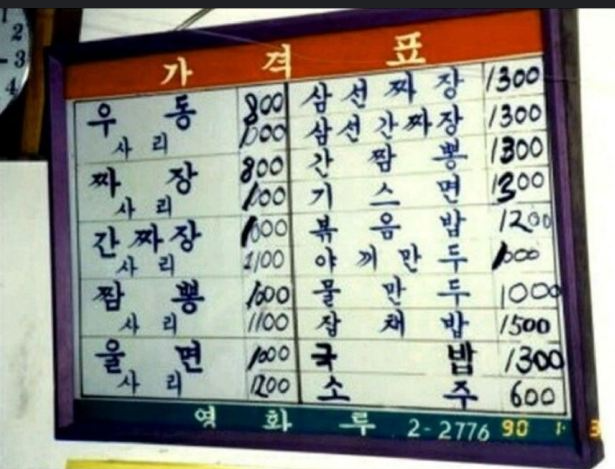 1
2
3
4
가 격 표
우 동 800
사 리 1000
짜 장 800
사 리 1000
간 짜 장 1000
사 리 1100
짬 뽕 1000
사 리 1100
울 면 1000
사 리 1200
삼 선 짜 장 1300
삼 선 간 짜 장 1300
간 짬 뽕 1300
기 스 면 1300
볶 음 밥 1200
야 끼 만 두 1000
물 만 두 1000
잡 채 밥 1500
국 밥 1300
소 주 600
영 화 루 2-2776
90 1 3